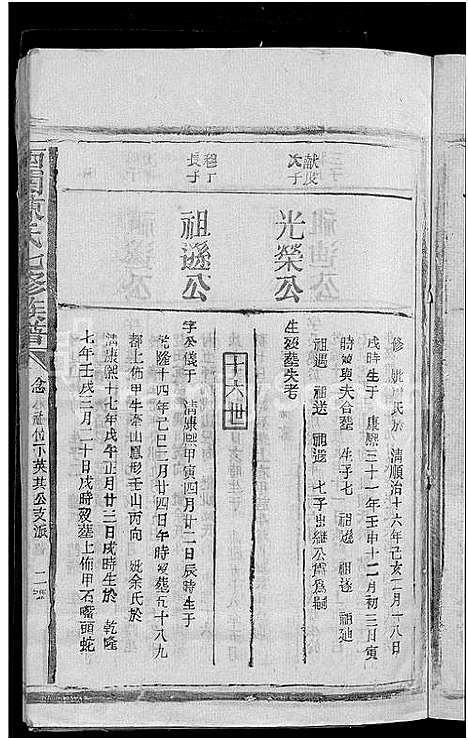 修 妣周氏於 清順治十六年己亥二月十八日
戌時生于 康熙三十一年壬申十二月初三日寅
時歿與夫合塟 生子七 祖遜 祖迪
祖遇 祖送 祖遜 七子出繼公賓爲嗣
献及
次子
光榮公
生歿塟失考
十六世
程丁
長子
祖遜公
字公儀于 清康熙甲寅四月廿二日辰時生于
乾隆十四年己巳三月廿四日午時歿塟五十八九
都上佈甲牛牽山鳳形壬山丙向 妣余氏於
清康熙十七年戊午正月廿三日戌時生於 乾隆
七年壬戌三月二十日戌時歿塟上佈甲石嘴頭蛇
陳氏七修族譜
位下英其公支派